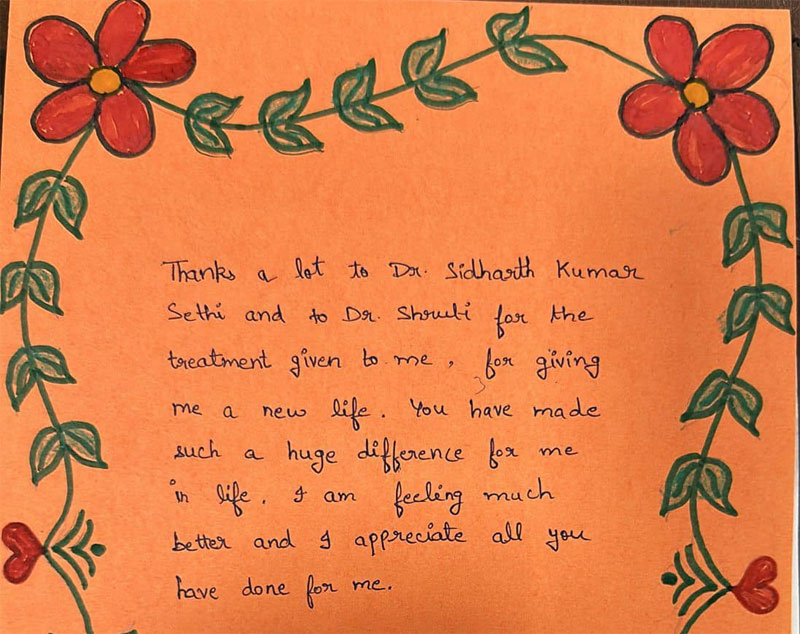 Thanks a lot to Dr. Sidharth Kumar
Sethi and to Dr. Shruti for the
treatment given to me, for giving
me a new life. You have made
such a huge difference for me
in life. I am feeling much
better and I appreciate all you
have done for me.